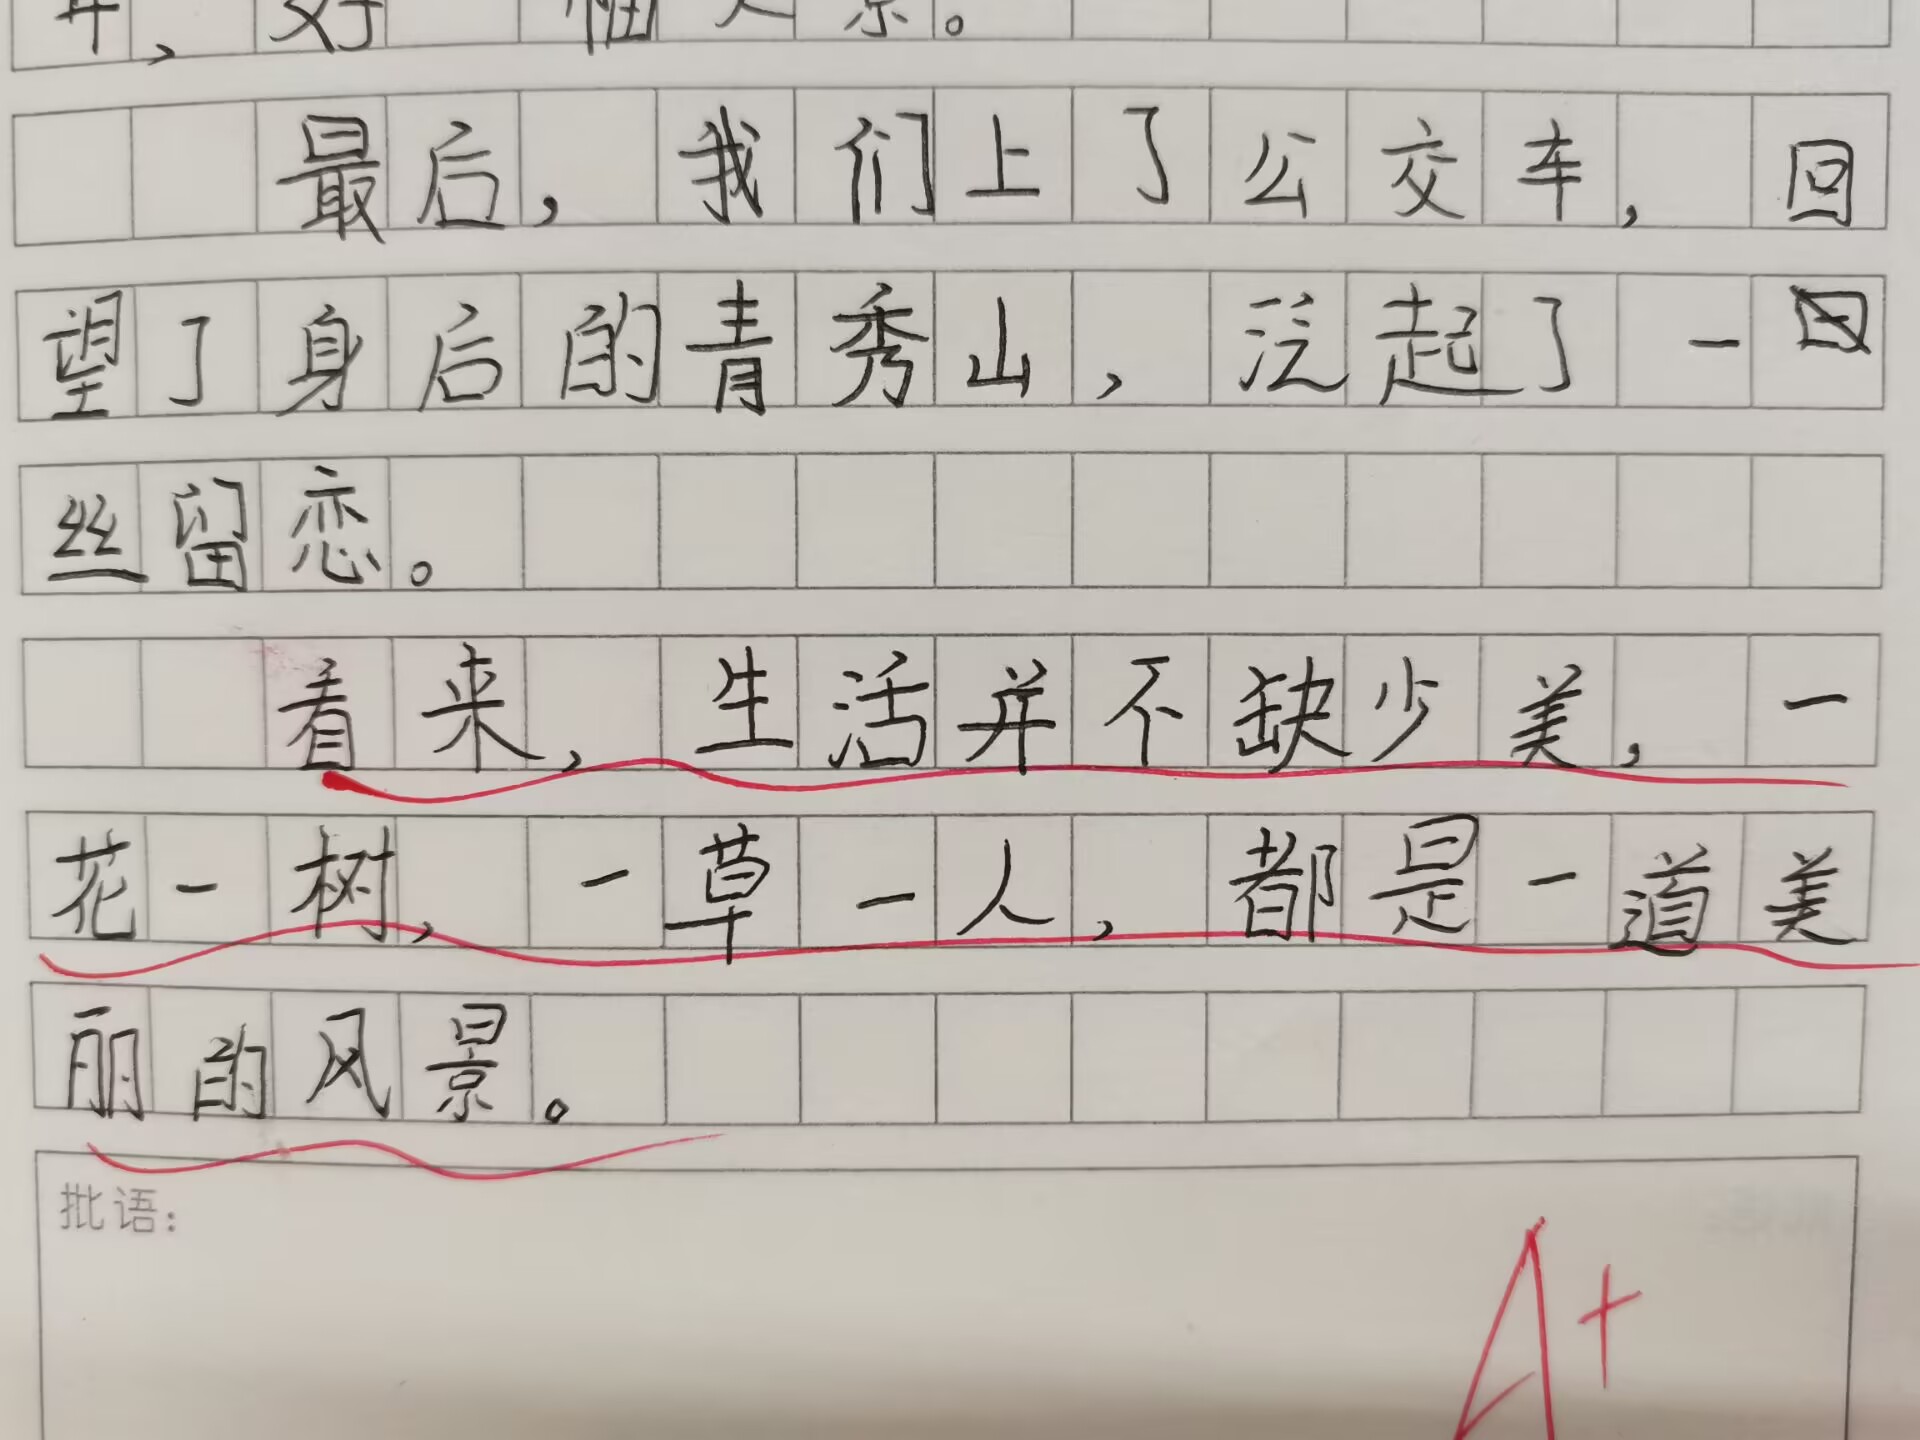 最后，我们上了公交车，回
望了身后的青秀山，泛起了一
丝留恋。
看来，生活并不缺少美，一
花一树，一草一人，都是一道美
丽的风景。
批语：
A+